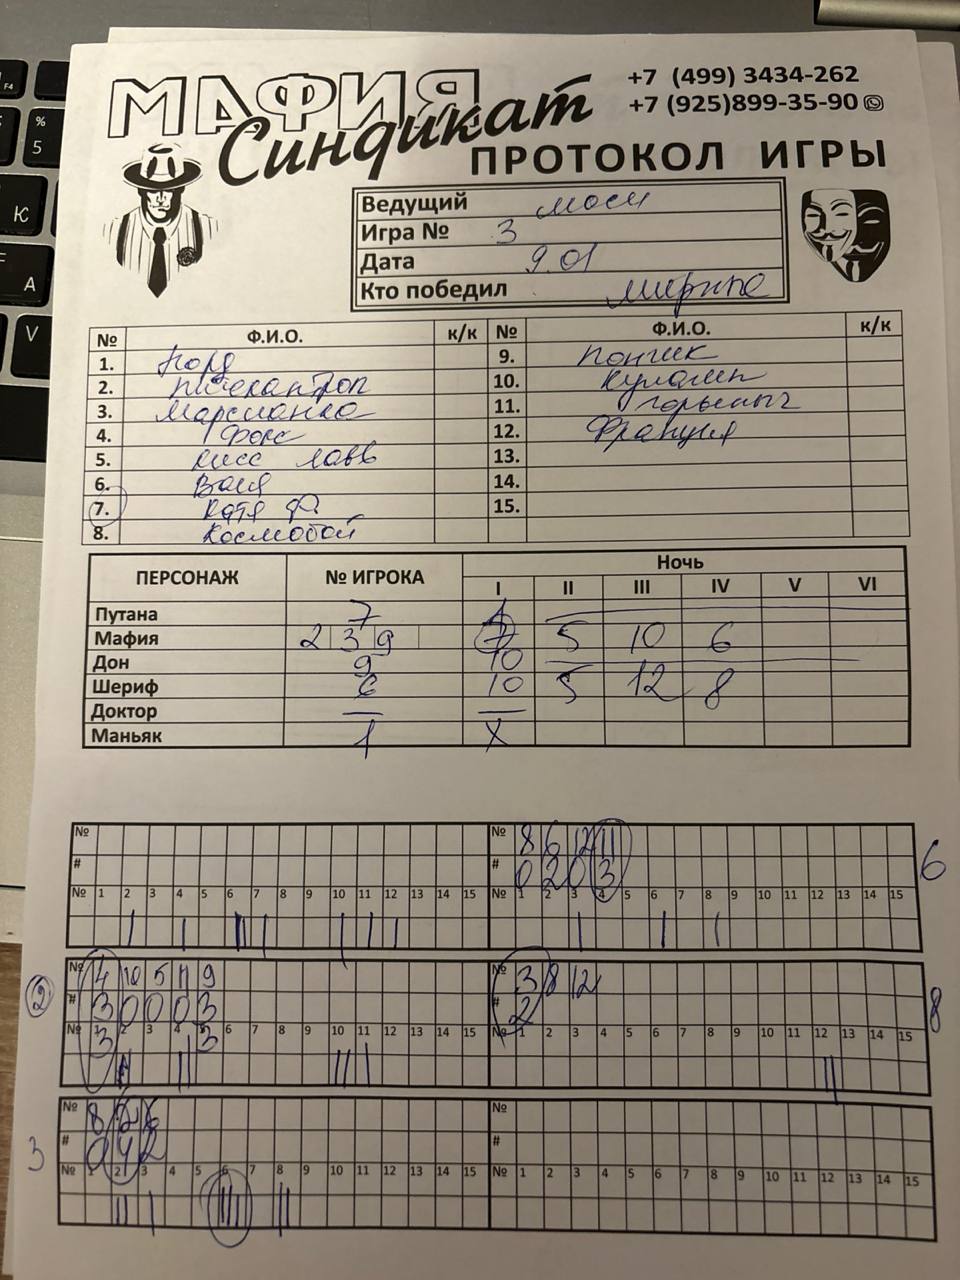 МАФИЯ
Синдикат
+7 (499) 3434-262
+7 (925)899-35-90
ПРОТОКОЛ ИГРЫ
Ведущий моси
Игра № 3
Дата 9.01
Кто победил мирные
№ Ф.И.О. к/к № Ф.И.О. к/к
1. Норд 9. Пончик
2. Питекантроп 10. Кулагин
3. Марсианка 11. Горыныч
4. Фокс 12. Франция
5. мисс лавв 13.
6. Ваня 14.
7. Катя 15.
8. Космобой
ПЕРСОНАЖ № ИГРОКА Ночь
I II III IV V VI
Путана 7
Мафия 2 3 9 7 5 10 6
Дон 9 10
Шериф 6 10 5 12 8
Доктор —
Маньяк 1 X
№ № 8 6 12 11
# # 0 2 0 3 6
№ 1 2 3 4 5 6 7 8 9 10 11 12 13 14 15 № 1 2 3 4 5 6 7 8 9 10 11 12 13 14 15
№ 4 10 5 11 9 № 3 8 12
2 # 3 0 0 0 3 # 2 8
№ 1 2 3 4 5 6 7 8 9 10 11 12 13 14 15 № 1 2 3 4 5 6 7 8 9 10 11 12 13 14 15
3 3
№ 8 2 6 №
3 # 0 4 2 #
№ 1 2 3 4 5 6 7 8 9 10 11 12 13 14 15 № 1 2 3 4 5 6 7 8 9 10 11 12 13 14 15